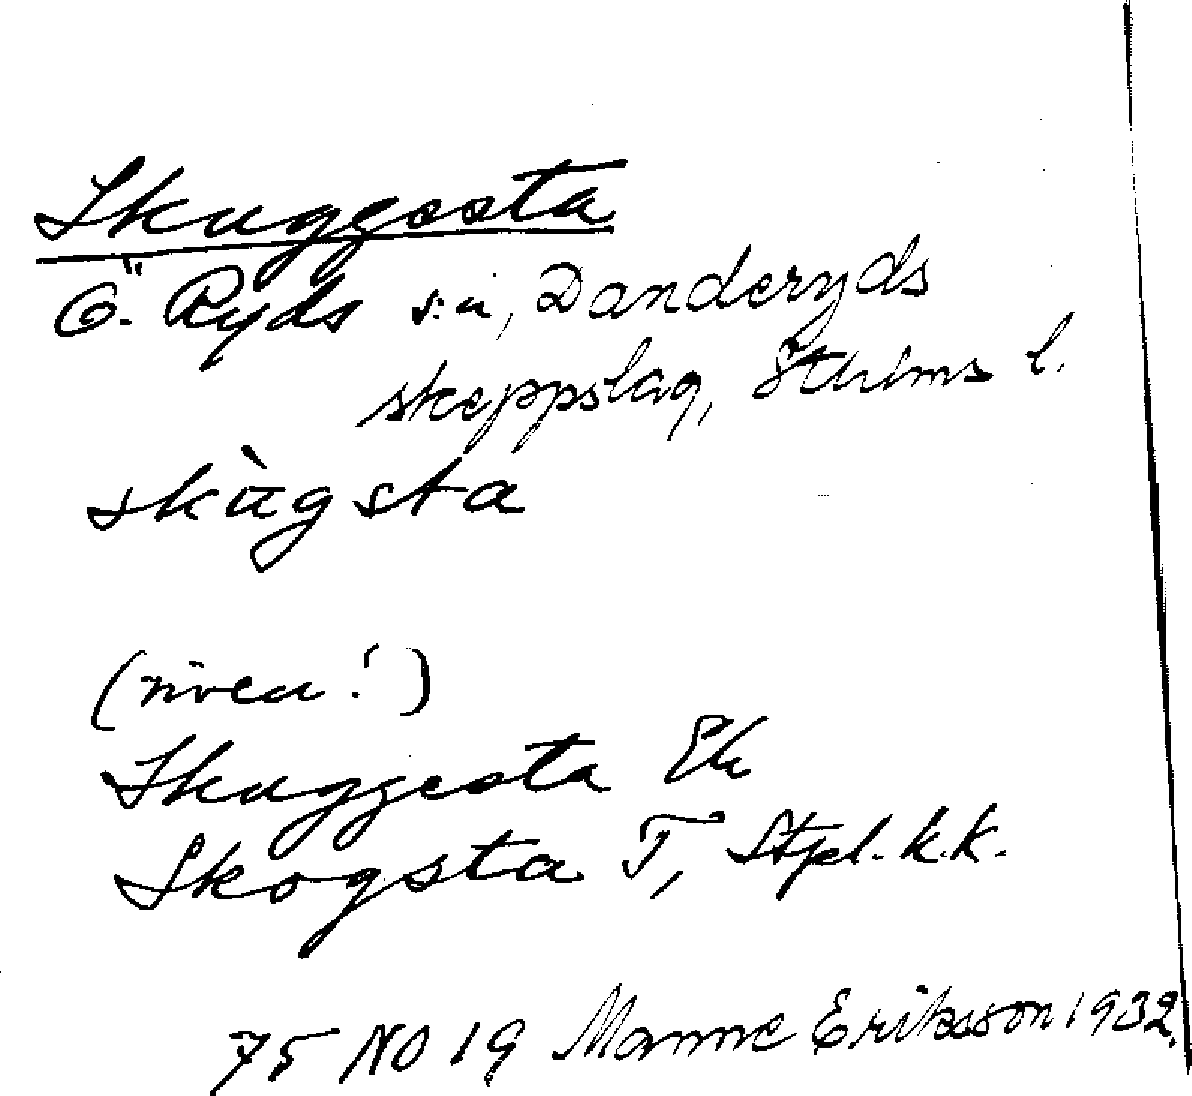 Skuggesta
Ö. Ryds s:n, Danderyds
skeppslag, Sthlms l.
skùgsta
(riven!)
Skuggesta Ek
Skogsta T, Stpl. k.k.
75 NO 19 Manne Eriksson 1932.